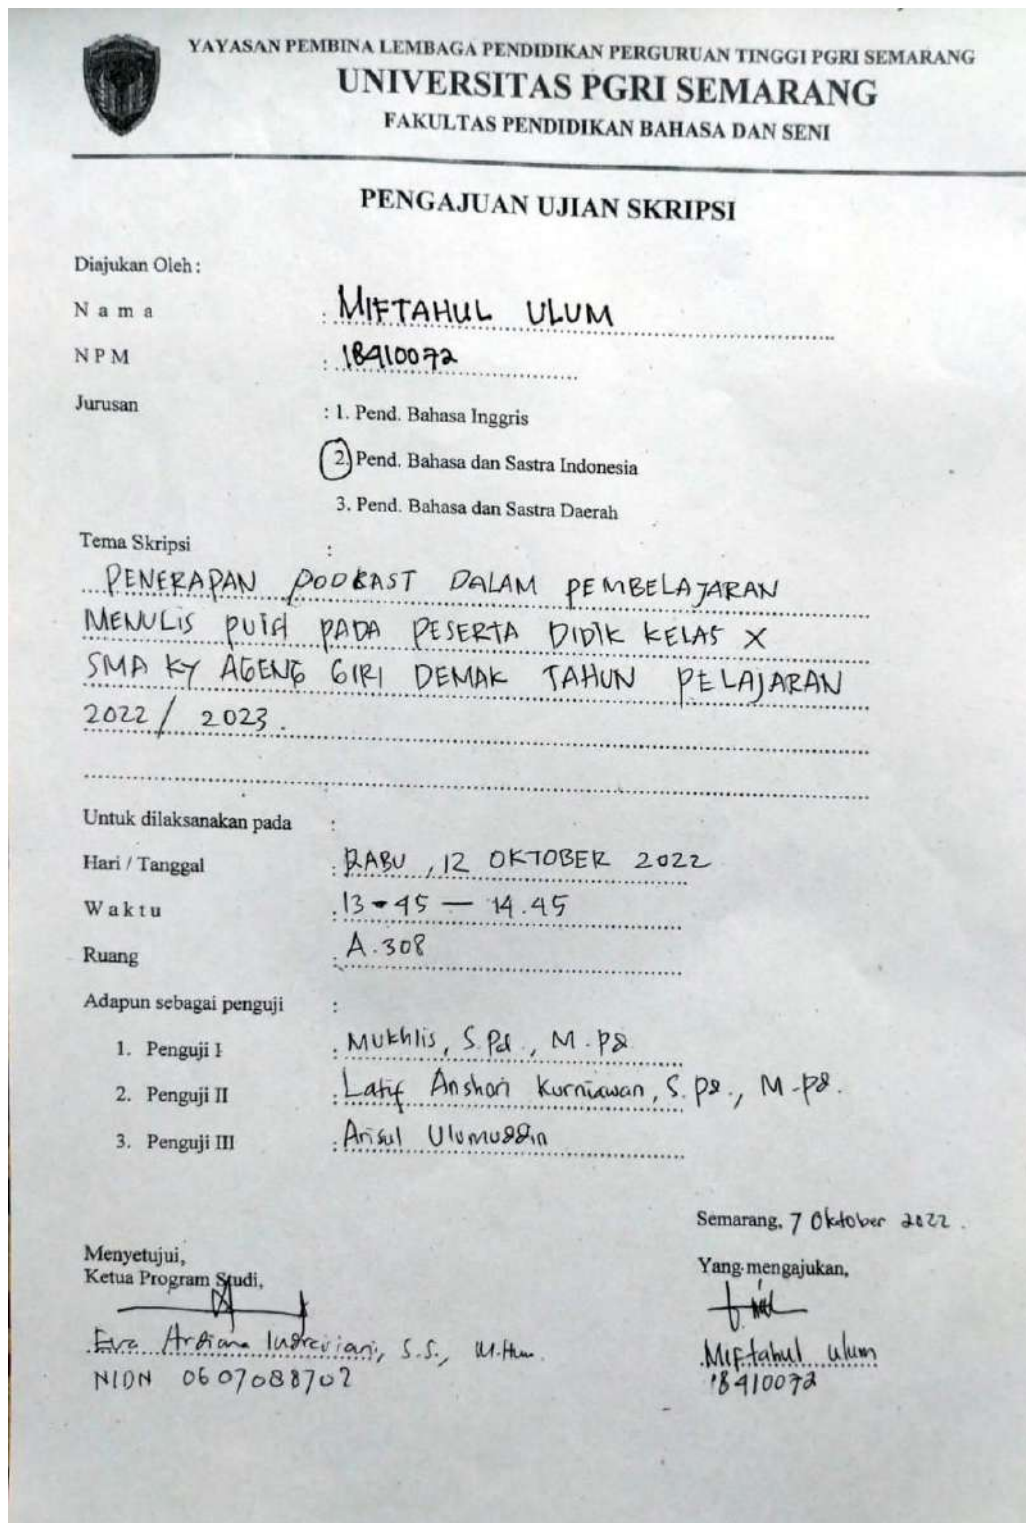 YAYASAN PEMBINA LEMBAGA PENDIDIKAN PERGURUAN TINGGI PGRI SEMARANG
UNIVERSITAS PGRI SEMARANG
FAKULTAS PENDIDIKAN BAHASA DAN SENI
PENGAJUAN UJIAN SKRIPSI
Diajukan Oleh :
N a m a : MIFTAHUL ULUM
NPM : 18410072
Jurusan : 1. Pend. Bahasa Inggris
2. Pend. Bahasa dan Sastra Indonesia
3. Pend. Bahasa dan Sastra Daerah
Tema Skripsi :
PENERAPAN PODKAST DALAM PEMBELAJARAN
MENULIS PUISI PADA PESERTA DIDIK KELAS X
SMA KY AGENG GIRI DEMAK TAHUN PELAJARAN
2022 / 2023.
Untuk dilaksanakan pada :
Hari / Tanggal : RABU , 12 OKTOBER 2022
W a k t u : 13-45 — 14.45
Ruang : A.308
Adapun sebagai penguji :
1. Penguji I : Mukhlis, S.Pd., M.Pd
2. Penguji II : Latif Anshori Kurniawan, S.Pd., M.Pd.
3. Penguji III : Arisul Ulumuddin
Semarang, 7 Oktober 2022.
Menyetujui,
Ketua Program Studi,
Yang mengajukan,
Eva Ardiana Indrariani, S.S., M.Hum.
NIDN 0607088702
Miftahul Ulum
18410072